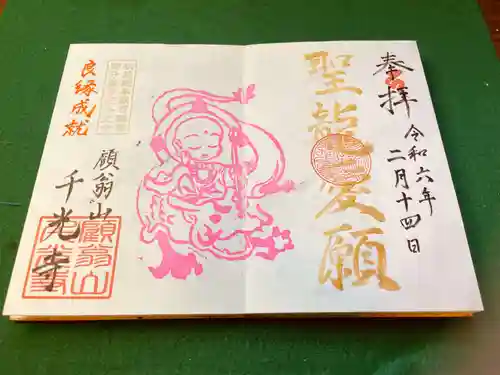 奉拝
令和六年
二月十四日
聖龍愛願
良縁成就
願翁山
千光寺